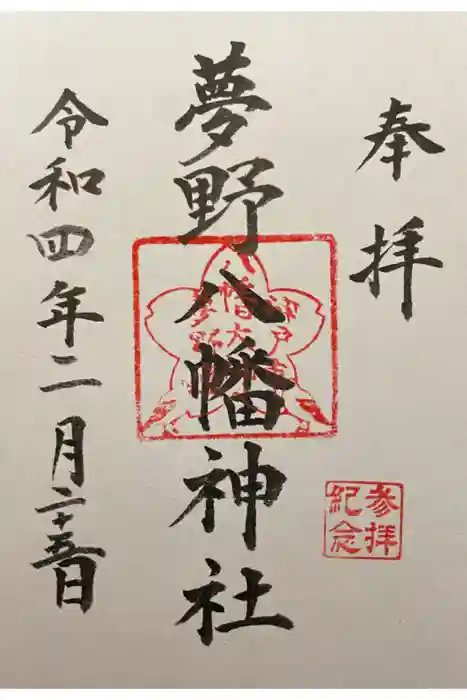 奉拝
夢野八幡神社
令和四年二月二十五日
参拝
紀念